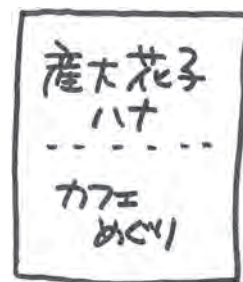 産大花子
ハナ
カフェ
めぐり